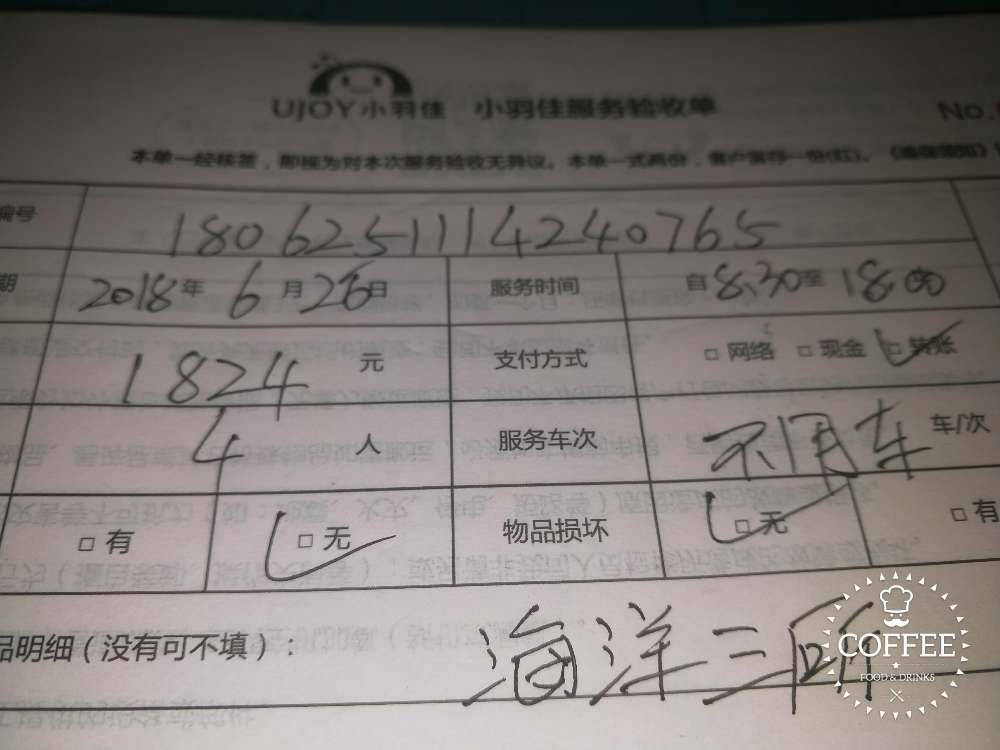 UJOY小羽佳 小羽佳服务验收单 No.
本单一经核签，即视为对本次服务验收无异议。本单一式两份，客户留存一份(红)。
编号 1806251114240765
期 2018年6月26日 服务时间 自8:30至18:00
1824元 支付方式 □网络 □现金 □转账
4人 服务车次 不用车 车/次
□有 □无 物品损坏 □无 □有
品明细（没有可不填）： 海洋三所
COFFEE
FOOD & DRINKS